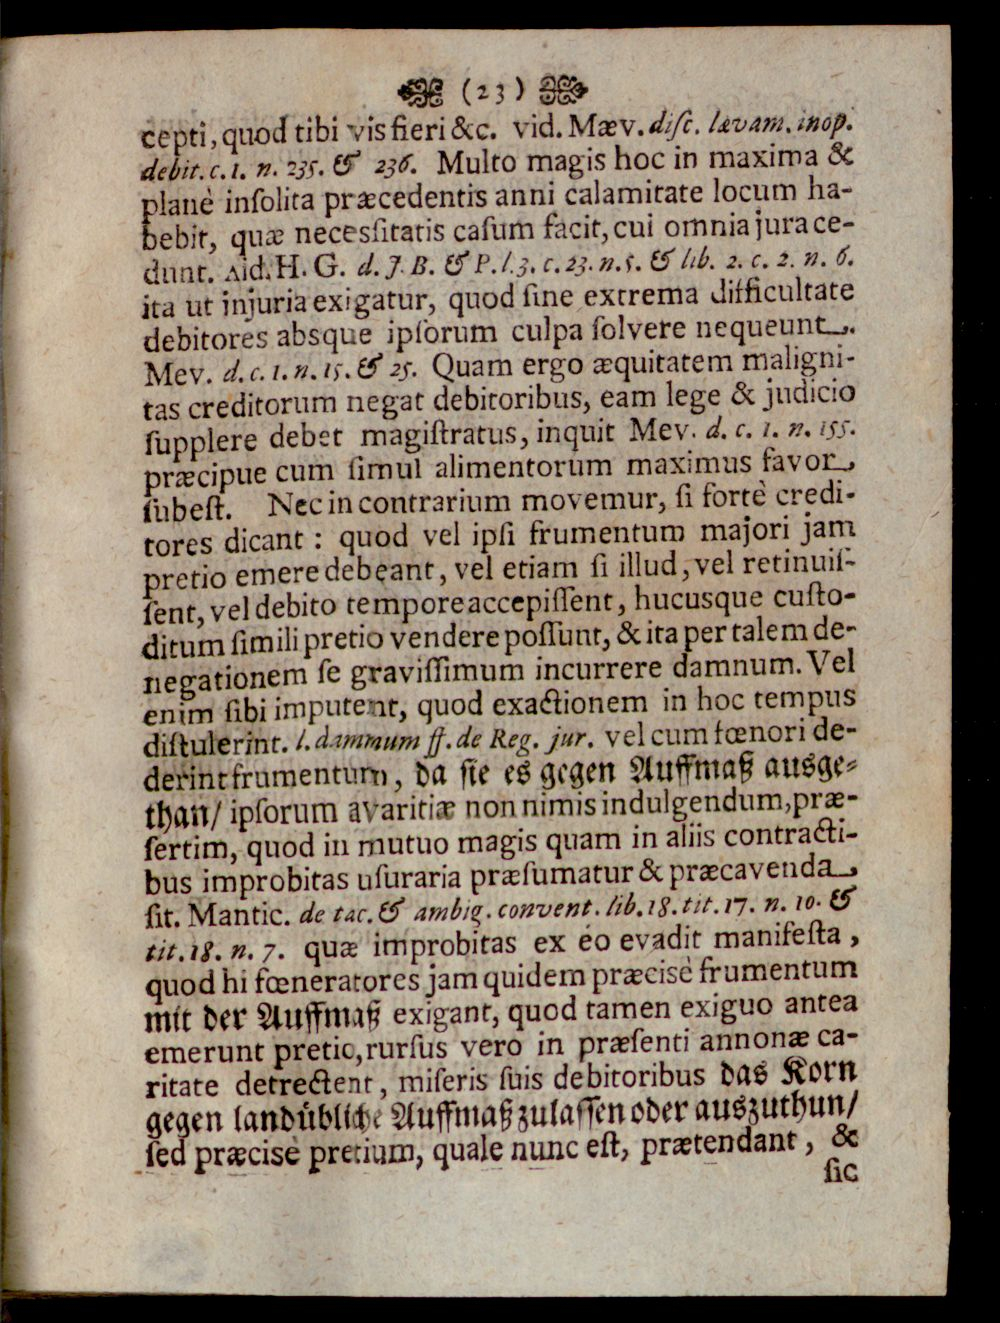 (23)
cepti, quod tibi vis fieri &c. vid. Mæv. diſc. lævam. inop.
debit. c. 1. n. 235. & 236. Multo magis hoc in maxima &
planè inſolita præcedentis anni calamitate locum ha-
bebit, quæ necesſitatis caſum facit, cui omnia jura ce-
dunt. Aid. H. G. d. J. B. & P. l. 3. c. 23. n. 5. & lib. 2. c. 2. n. 6.
ita ut injuria exigatur, quod ſine extrema difficultate
debitores absque ipſorum culpa ſolvere nequeunt.
Mev. d. c. 1. n. 15. & 25. Quam ergo æquitatem maligni-
tas creditorum negat debitoribus, eam lege & judicio
ſupplere debet magiſtratus, inquit Mev. d. c. 1. n. 155.
præcipue cum ſimul alimentorum maximus favor,
ſubeſt. Nec in contrarium movemur, ſi fortè credi-
tores dicant : quod vel ipſi frumentum majori jam
pretio emere debeant, vel etiam ſi illud, vel retinuiſ-
ſent, vel debito tempore accepiſſent, hucusque cuſto-
ditum ſimili pretio vendere poſſunt, & ita per talem de-
negationem ſe graviſſimum incurrere damnum. Vel
enim ſibi imputent, quod exactionem in hoc tempus
diſtulerint. l. damnum ff. de Reg. jur. vel cum fœnori de-
derint frumentum, da ſie es gegen Auffmaß ausge-
than/ ipſorum avaritiæ non nimis indulgendum, præ-
ſertim, quod in mutuo magis quam in aliis contracti-
bus improbitas uſuraria præſumatur & præcavenda,
ſit. Mantic. de tac. & ambig. convent. lib. 18. tit. 17. n. 10. &
tit. 18. n. 7. quæ improbitas ex eo evadit manifeſta,
quod hi fœneratores jam quidem præcisè frumentum
mit der Auffmaß exigant, quod tamen exiguo antea
emerunt pretio, rurſus vero in præſenti annonæ ca-
ritate detrectent, miſeris ſuis debitoribus das Korn
gegen landübliche Auffmaß zulaſſen oder auszuthun/
ſed præcisè pretium, quale nunc eſt, prætendant, &
ſic